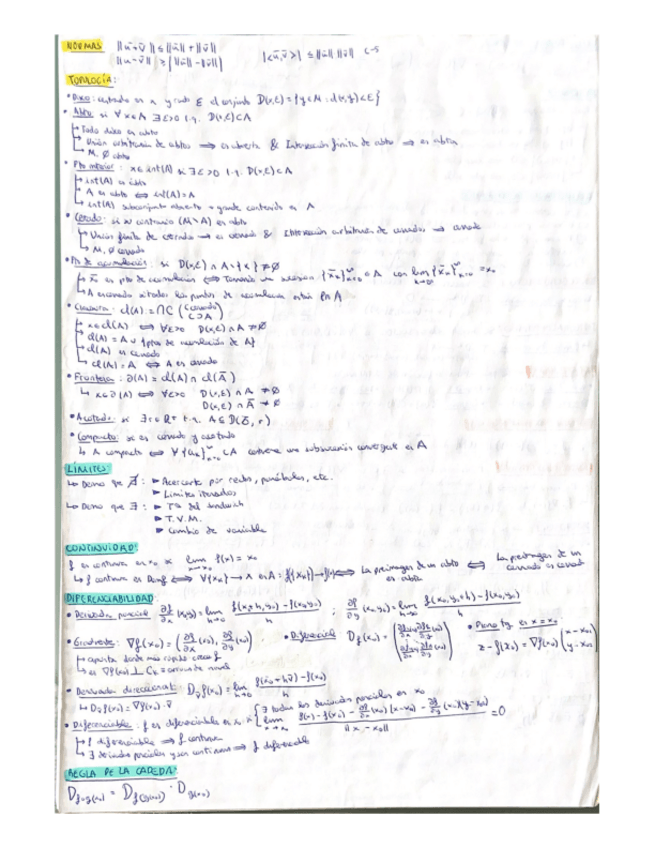 NORMAS ||ū+v̄|| ≤ ||ū|| + ||v̄|| |<ū,v̄>| ≤ ||ū|| ||v̄|| C-S
||ū-v̄|| ≥ | ||ū|| - ||v̄|| |
TOPOLOGÍA:
• Disco: centrado en x y radio ε el conjunto D(x,ε) = {y∈M : d(x,y)<ε}
• Abto si ∀x∈A ∃ε>0 t.q. D(x,ε)⊂A
↳ Todo disco es abto
↳ Unión arbitraria de abtos → es abierta & Intersección finita de abtos → es abto
↳ M, ∅ abto
• Pto interior: x∈int(A) si ∃ε>0 t.q. D(x,ε)⊂A
↳ int(A) es abto
↳ A es abto ⟺ int(A)=A
↳ int(A) subconjunto abierto + grande contenido en A
• Cerrado: si su contrario (M\A) es abto
↳ Unión finita de cerrados → es cerrado & Intersección arbitraria de cerrados → cerrado
↳ M, ∅ cerrado
• Pto de acumulación: si D(x,ε) ∩ A\{x} ≠ ∅
↳ x̄₀ es pto de acumulación ⟺ sucesión {x̄ₙ} ⊂ A con lim {x̄ₙ} = x₀
↳ A es cerrado si todos los puntos de acumulación están en A
• Clausura: cl(A) = ∩C (C cerrado C⊃A)
↳ x∈cl(A) ⟺ ∀ε>0 D(x,ε) ∩ A ≠ ∅
↳ cl(A) = A ∪ {ptos de acumulación de A}
↳ cl(A) es cerrado
↳ cl(A) = A ⟺ A es cerrado
• Frontera: ∂(A) = cl(A) ∩ cl(Ā)
↳ x∈∂(A) ⟺ ∀ε>0 D(x,ε) ∩ A ≠ ∅
D(x,ε) ∩ Ā ≠ ∅
• Acotado: si ∃r∈R⁺ t.q. A⊆D(0̄, r)
• Compacto: si es cerrado y acotado
↳ A compacto ⟺ ∀{aₙ} ⊂ A contiene una subsucesión convergente en A
LÍMITES:
↳ Demo que ∄: ► Acercarte por rectas, parábolas, etc.
► Límites iterados
↳ Demo que ∃: ► Tª del sandwich
► T.V.M.
► Cambio de variable
CONTINUIDAD:
f es continua en x₀ si lim f(x) = x₀
↳ f continua en Domf ⟺ ∀{xₙ} → x en A : f(xₙ) → f(x) ⟺ La preimagen de un abto es abto ⟺ La preimagen de un cerrado es cerrado
DIFERENCIABILIDAD:
• Derivada parcial ∂f/∂x (x,y) = lim h→0 f(x₀+h,y₀)-f(x₀,y₀) / h ; ∂f/∂y (x₀,y₀) = lim h→0 f(x₀,y₀+h)-f(x₀,y₀) / h
• Gradiente: ∇f(x₀) = (∂f/∂x (x₀), ∂f/∂y (x₀)) • Diferencial Df(x₀) = • Plano tg en x=x₀
↳ apunta donde más rápido crece f z - f(x₀) = ∇f(x₀) (x-x₀, y-y₀)
↳ es ∇f(x₀) ⊥ Cₖ = curvas de nivel
• Derivada direccional: Dv̄f(x₀) = lim h→0 f(x̄₀+hv̄)-f(x̄₀) / h
↳ Dv̄f(x₀) = ∇f(x₀)·v̄
• Diferenciable: f es diferenciable en x₀ si { ∃ todas las derivadas parciales en x₀
lim x→x₀ f(x)-f(x₀) - ∂f/∂x (x₀)(x-x₀) - ∂f/∂y (x₀)(y-y₀) / ||x-x₀|| = 0
↳ f diferenciable ⟹ f continua
↳ ∃ derivadas parciales y son continuas ⟹ f diferenciable
REGLA DE LA CADENA:
Df∘g(x₀) = Df(g(x₀)) · Dg(x₀)